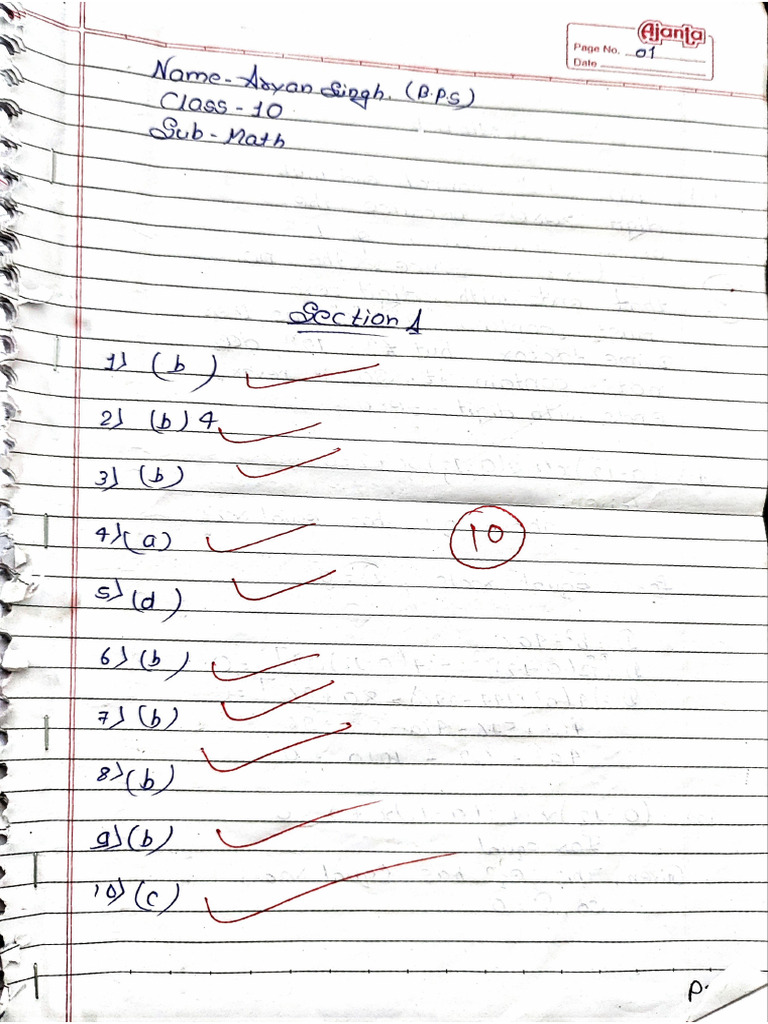 Ajanta
Page No. 01
Date
Name - Aryan Singh. (B.P.S)
Class - 10
Sub - Math
Section A
1) (b)
2) (b) 4
3) (b)
4) (a)
10
5) (d)
6) (b)
7) (b)
8) (b)
9) (b)
10) (c)
P.